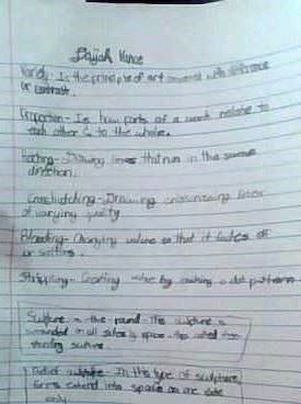 Vance
Variety- Is the principle of art concerned with difference
or contrast.
Proportion- Is how parts of a work relate to
each other & to the whole.
Hatching- Drawing lines that run in the same
direction.
Crosshatching- Drawing crisscrossing lines
of varying quality.
Blending- Changing value so that it fades off
or
Stippling- Creating value by making a dot pattern
Sculpture in the round- This sculpture is
surrounded on all sides by space. Also called free
standing
Relief sculpture In this type of sculpture,
forms extend into space on one side
only.